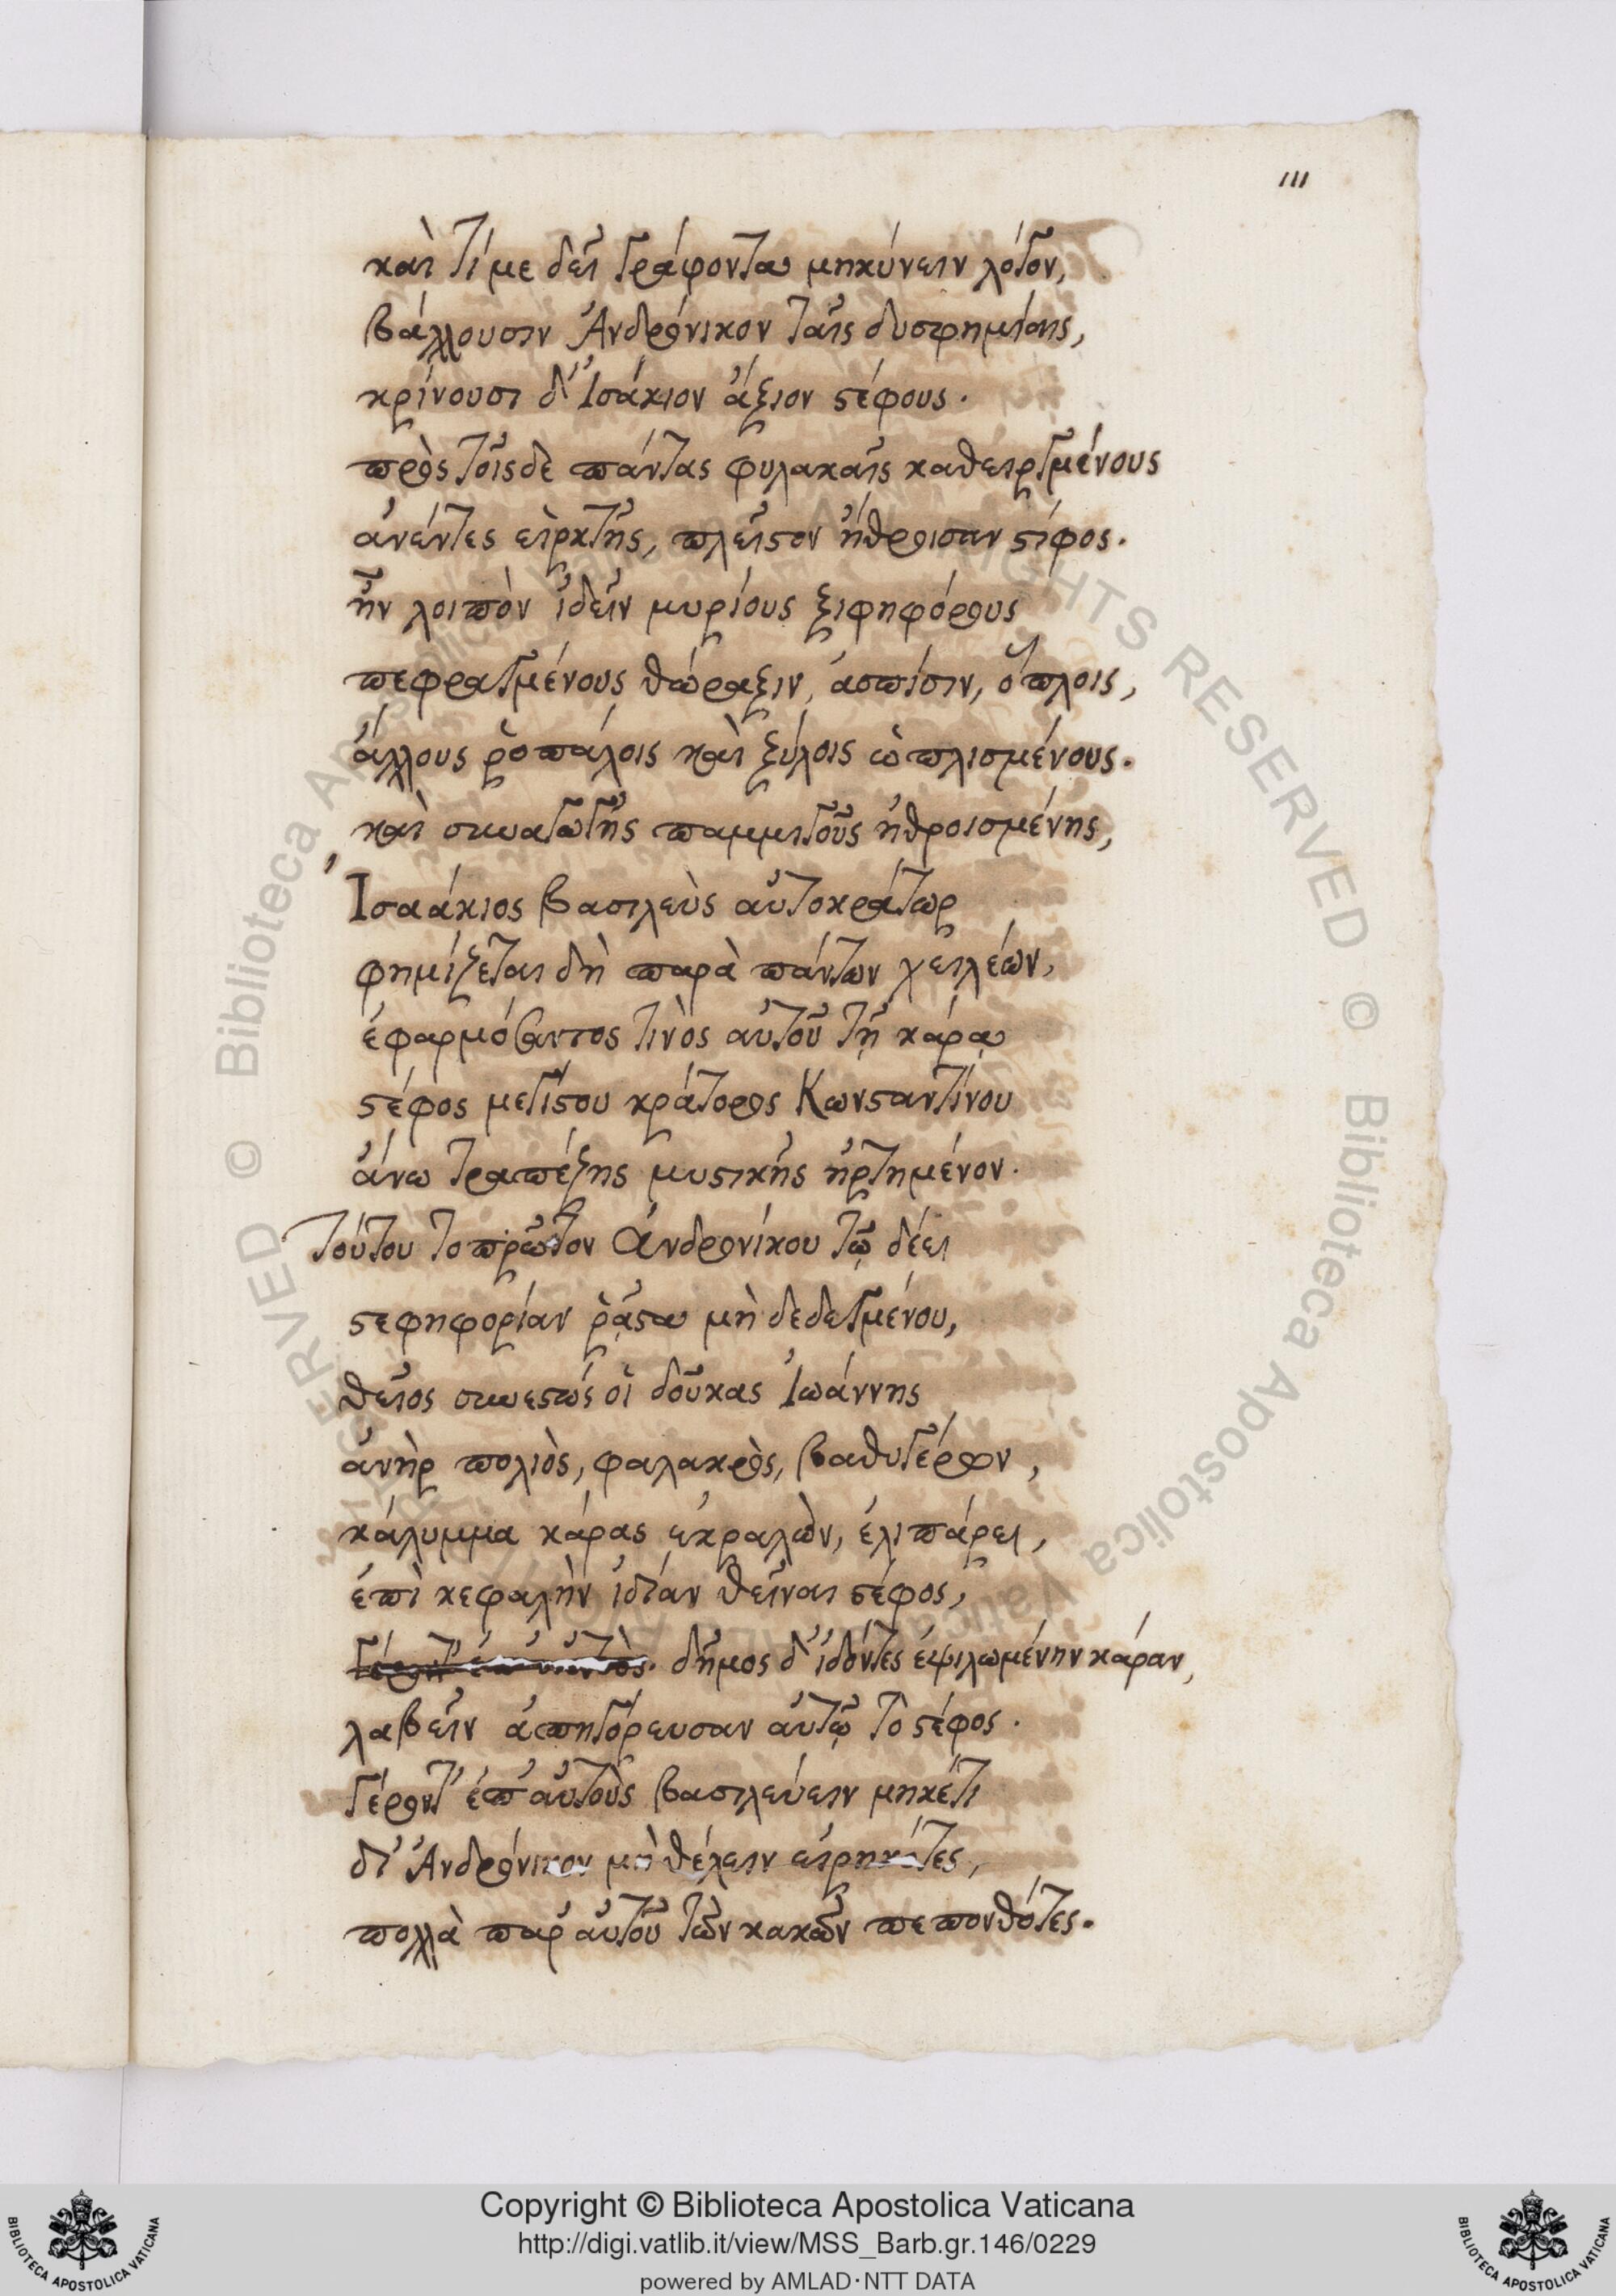 111
καὶ τί με δεῖ γράφοντα μηκύνειν λόγον,
βάλλουσιν Ἀνδρόνικον ταῖς δυσφημίαις,
κρίνουσι δ' Ἰσάκιον ἄξιον στέφους.
πρὸς τοῖσδε πάντας φυλακαῖς καθειργμένους
ἀνέντες εἱρκτῆς, πλεῖστον ἤθροισαν στίφος.
ἦν λοιπὸν ἰδεῖν μυρίους ξιφηφόρους
πεφραγμένους θώραξιν, ἀσπίσιν, ὅπλοις,
ἄλλους ῥοπάλοις καὶ ξύλοις ὡπλισμένους.
καὶ συναγωγῆς παμμιγοῦς ἠθροισμένης,
Ἰσαάκιος βασιλεὺς αὐτοκράτωρ
φημίζεται δὴ παρὰ πάντων χειλέων,
ἐφαρμόσαντος τινὸς αὐτοῦ τῇ κάρᾳ
στέφος μεγίστου κράτορος Κωνσταντίνου
ἄνω τραπέζης μυστικῆς ἠρτημένον.
Τούτου το πρῶτον Ἀνδρονίκου τῷ δέει
στεφηφορίαν ῥᾷστα μὴ δεδεγμένου,
θεῖος συνεστώς οἱ δούκας Ἰωάννης
ἀνὴρ πολιὸς, φαλακρὸς, βαθυγέρων,
κάλυμμα κάρας ἐκβαλὼν, ἐλιπάρει,
ἐπὶ κεφαλὴν ἰδίαν θεῖναι στέφος,
δῆμος δ' ἰδόντες ἐψιλωμένην κάραν,
λαβεῖν ἀπηγόρευσαν αὐτῷ τὸ στέφος.
γέροντ' ἐπ' αὐτοὺς βασιλεύειν μηκέτι
δι' Ἀνδρόνικον μὴ θέλειν εἰρηκότες,
πολλὰ παρ' αὐτοῦ τῶν κακῶν πεπονθότες.
Copyright © Biblioteca Apostolica Vaticana
http://digi.vatlib.it/view/MSS_Barb.gr.146/0229
powered by AMLAD·NTT DATA